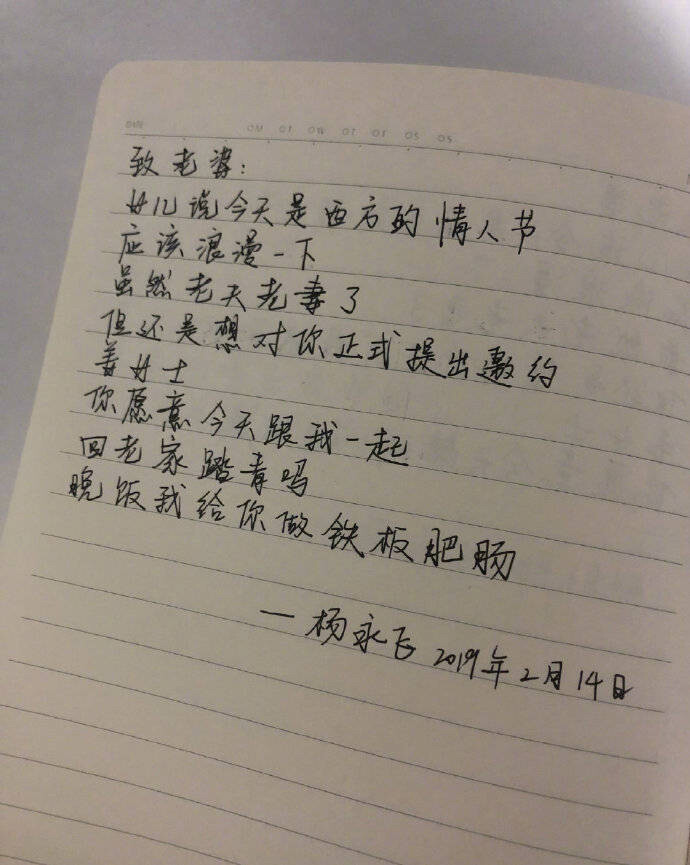 DATE
OM OT OW OT OF OS OS
致老婆:
女儿说今天是西方的情人节
应该浪漫一下
虽然老夫老妻了
但还是想对你正式提出邀约
姜女士
你愿意今天跟我一起
回老家踏青吗
晚饭我给你做铁板肥肠
—杨永飞 2019年2月14日